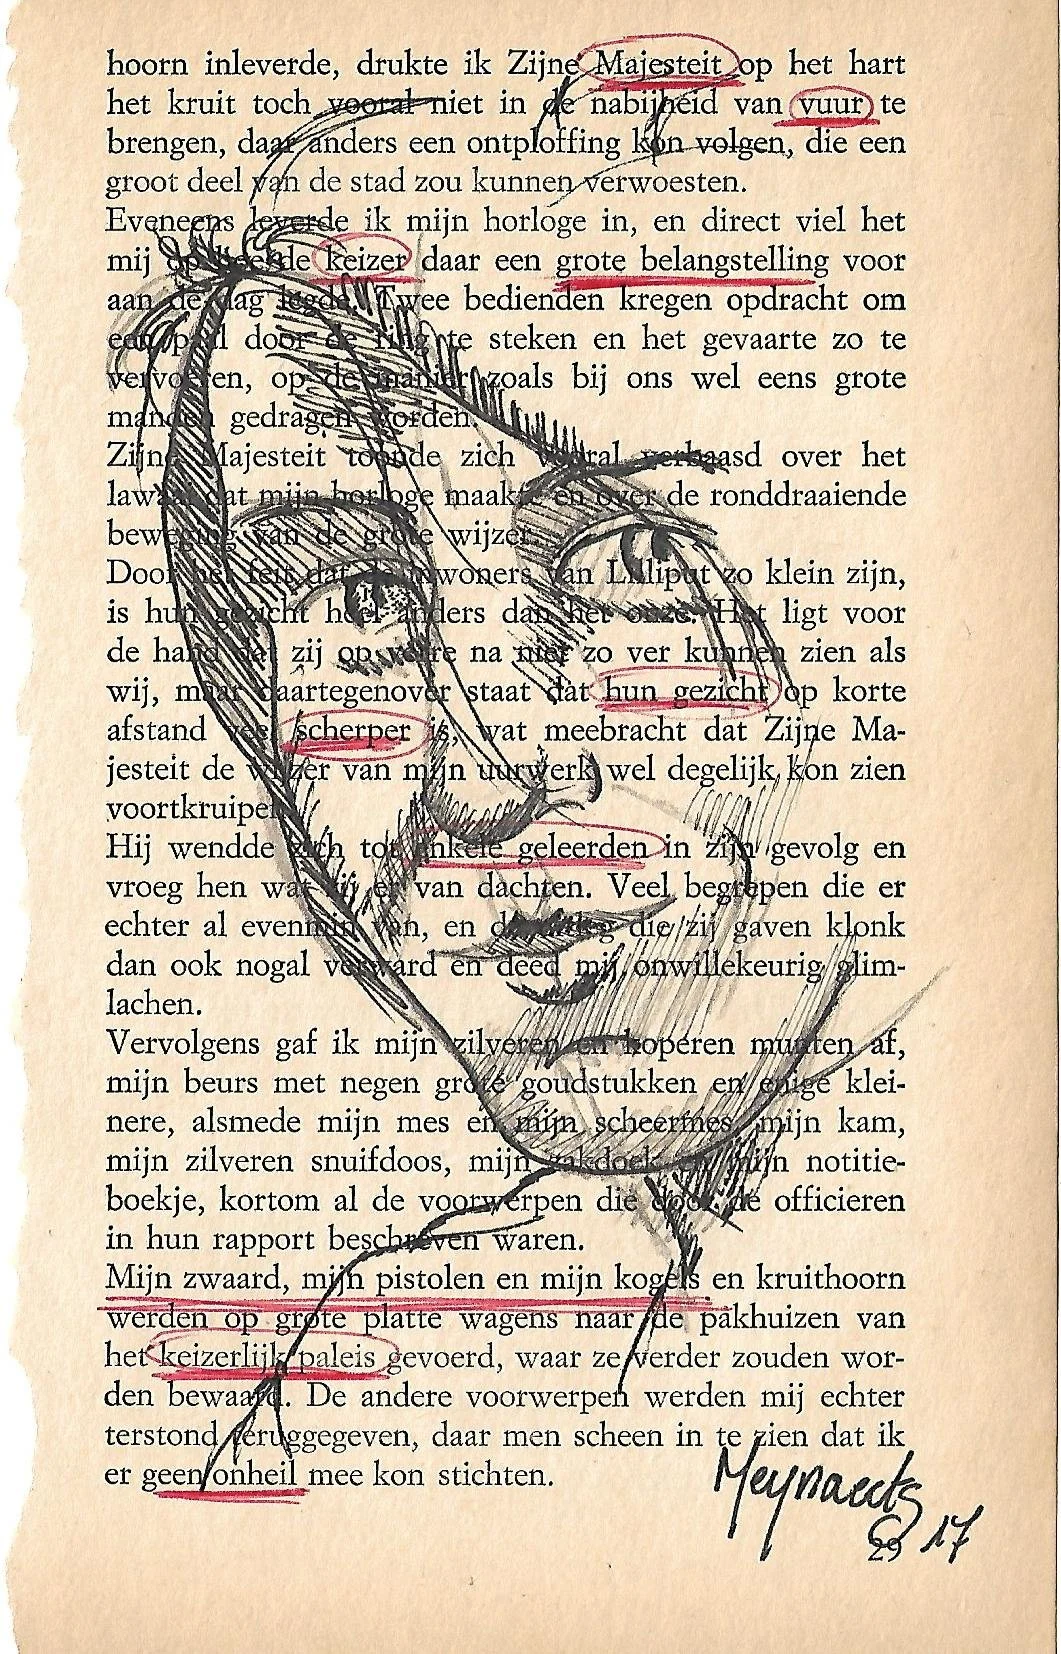 hoorn inleverde, drukte ik Zijne Majesteit op het hart
het kruit toch vooral niet in de nabijheid van vuur te
brengen, daar anders een ontploffing kon volgen, die een
groot deel van de stad zou kunnen verwoesten.
Eveneens leverde ik mijn horloge in, en direct viel het
mij op hoe de keizer daar een grote belangstelling voor
aan de dag legde. Twee bedienden kregen opdracht om
een paal door de ring te steken en het gevaarte zo te
vervoeren, op de manier zoals bij ons wel eens grote
manden gedragen worden.
Zijne Majesteit toonde zich vooral verbaasd over het
lawaai dat mijn horloge maakte en over de ronddraaiende
beweging van de grote wijzer.
Door het feit dat de inwoners van Lilliput zo klein zijn,
is hun gezicht heel anders dan het onze. Het ligt voor
de hand dat zij op verre na niet zo ver kunnen zien als
wij, maar daartegenover staat dat hun gezicht op korte
afstand veel scherper is, wat meebracht dat Zijne Ma-
jesteit de wijzer van mijn uurwerk wel degelijk kon zien
voortkruipen.
Hij wendde zich tot enkele geleerden in zijn gevolg en
vroeg hen wat zij er van dachten. Veel begrepen die er
echter al evenmin van, en de uitleg die zij gaven klonk
dan ook nogal verward en deed mij onwillekeurig glim-
lachen.
Vervolgens gaf ik mijn zilveren en koperen munten af,
mijn beurs met negen grote goudstukken en enige klei-
nere, alsmede mijn mes en mijn scheermes, mijn kam,
mijn zilveren snuifdoos, mijn zakdoek en mijn notitie-
boekje, kortom al de voorwerpen die door de officieren
in hun rapport beschreven waren.
Mijn zwaard, mijn pistolen en mijn kogels en kruithoorn
werden op grote platte wagens naar de pakhuizen van
het keizerlijk paleis gevoerd, waar ze verder zouden wor-
den bewaard. De andere voorwerpen werden mij echter
terstond teruggegeven, daar men scheen in te zien dat ik
er geen onheil mee kon stichten.
Meynaerts
29 17